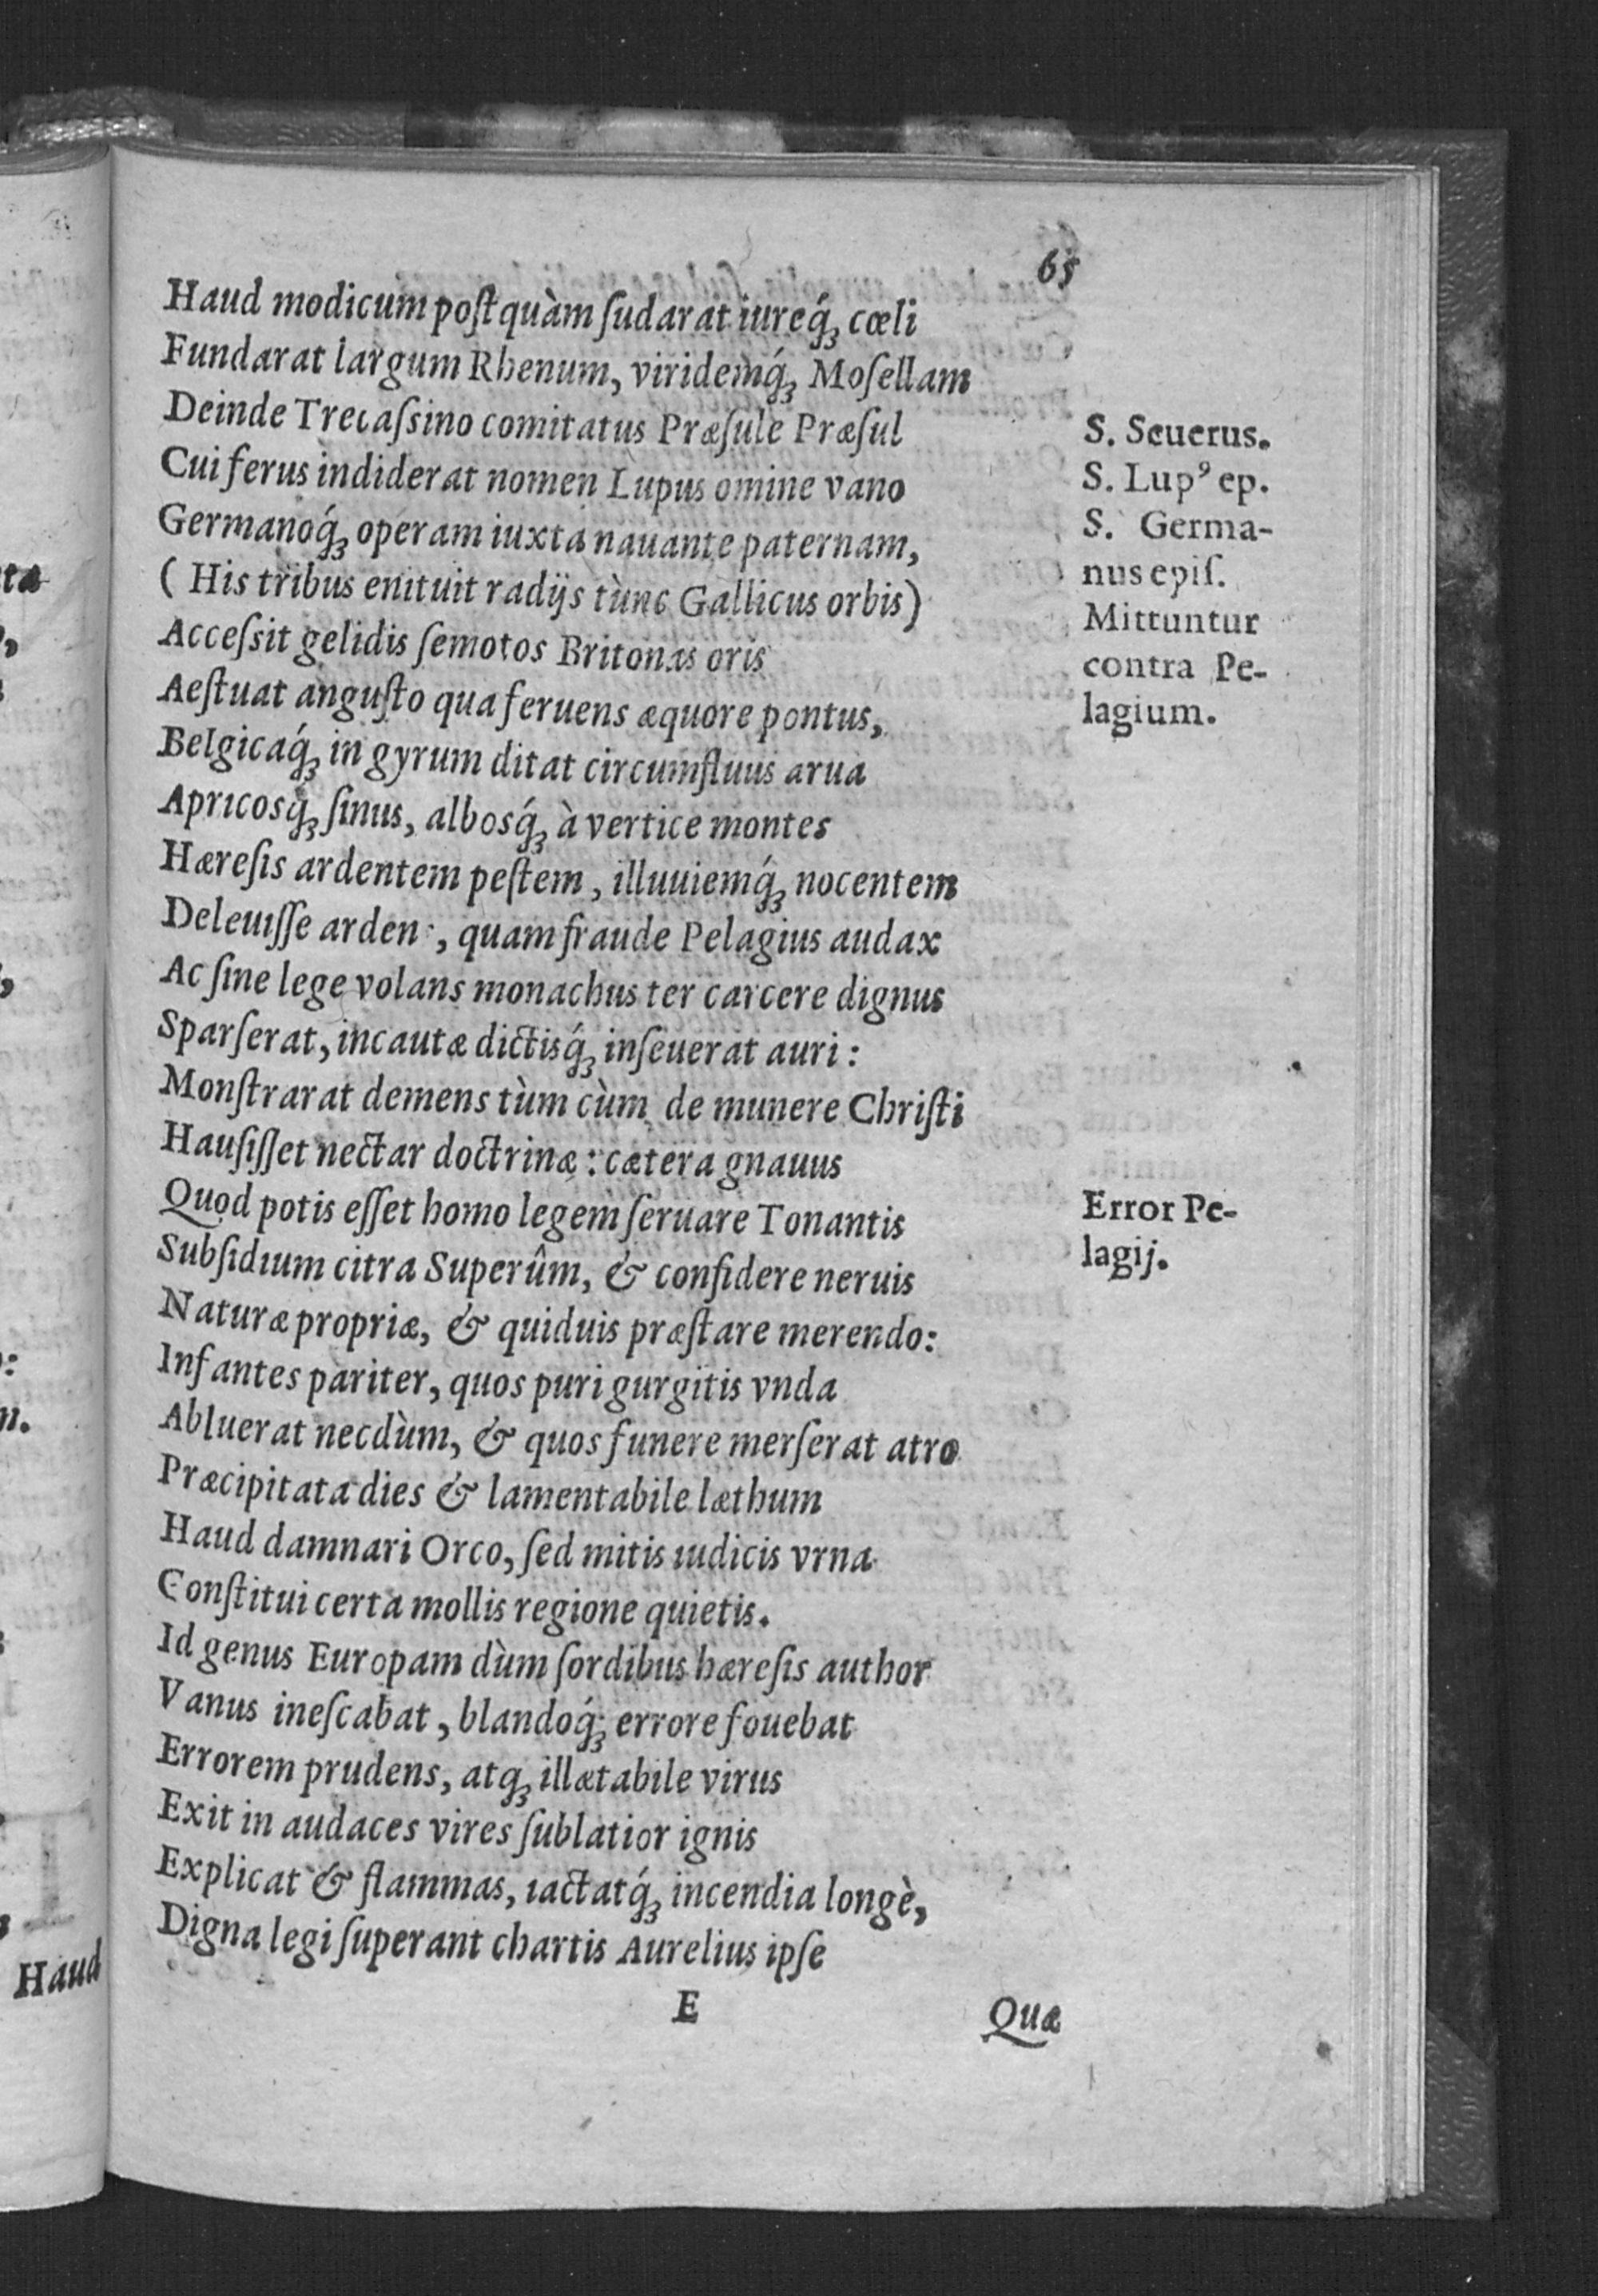 65
Haud modicum poſtquàm ſudarat iureq́ꝫ cœli
Fundarat largum Rhenum, viridemq́ꝫ Moſellam
Deinde Trecaſsino comitatus Præſule Præſul
Cui ferus indiderat nomen Lupus omine vano
Germanoq́ꝫ operam iuxta nauante paternam,
( His tribus enituit radijs tùnc Gallicus orbis)
Acceſsit gelidis ſemotos Britonas oris
Aeſtuat anguſto qua feruens æquore pontus,
Belgicaq́ꝫ in gyrum ditat circumfluus arua
Apricosq́ꝫ ſinus, albosq́ꝫ à vertice montes
Hæreſis ardentem peſtem, illuuiemq́ꝫ nocentem
Deleuiſſe arden , quam fraude Pelagius audax
Ac ſine lege volans monachus ter carcere dignus
Sparſerat, incautæ dictisq́ꝫ inſeuerat auri:
Monſtrarat demens tùm cùm de munere Chriſti
Hauſiſſet nectar doctrinæ: cætera gnauus
Quod potis eſſet homo legem ſeruare Tonantis
Subſidium citra Superûm, & confidere neruis
Naturæ propriæ, & quiduis præſtare merendo:
Infantes pariter, quos puri gurgitis vnda
Abluerat necdùm, & quos funere merſerat atro
Præcipitata dies & lamentabile læthum
Haud damnari Orco, ſed mitis iudicis vrna
Conſtitui certa mollis regione quietis.
Id genus Europam dùm ſordibus hæreſis author
Vanus ineſcabat, blandoq́ꝫ errore fouebat
Errorem prudens, atqꝫ illætabile virus
Exit in audaces vires ſublatior ignis
Explicat & flammas, iactatq́ꝫ incendia longè,
Digna legi ſuperant chartis Aurelius ipſe
E
Quæ
S. Seuerus.
S. Lupꝰ ep.
S. Germa-
nus epiſ.
Mittuntur
contra Pe-
lagium.
Error Pe-
lagij.
Haud